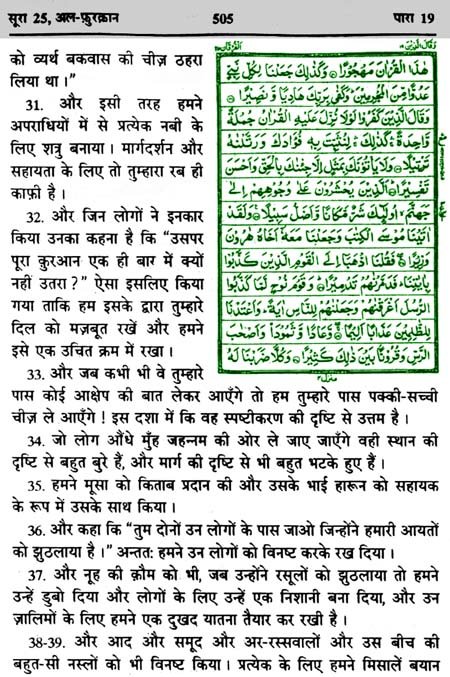 सूरा 25, अल-फ़ुरक़ान 505 पारा 19
को व्यर्थ बकवास की चीज़ ठहरा
लिया था।"
31. और इसी तरह हमने
अपराधियों में से प्रत्येक नबी के
लिए शत्रु बनाया। मार्गदर्शन और
सहायता के लिए तो तुम्हारा रब ही
काफ़ी है।
32. और जिन लोगों ने इनकार
किया उनका कहना है कि "उसपर
पूरा क़ुरआन एक ही बार में क्यों
नहीं उतरा?" ऐसा इसलिए किया
गया ताकि हम इसके द्वारा तुम्हारे
दिल को मज़बूत रखें और हमने
इसे एक उचित क्रम में रखा।
33. और जब कभी भी वे तुम्हारे
وقال الذين ١٩ الفرقان ٢٥
هٰذَا الْقُرْاٰنَ مَهْجُوْرًا ۝ وَكَذٰلِكَ جَعَلْنَا لِكُلِّ نَبِيٍّ
عَدُوًّا مِّنَ الْمُجْرِمِيْنَ وَكَفٰى بِرَبِّكَ هَادِيًا وَّنَصِيْرًا ۝
وَقَالَ الَّذِيْنَ كَفَرُوْا لَوْلَا نُزِّلَ عَلَيْهِ الْقُرْاٰنُ جُمْلَةً
وَّاحِدَةً كَذٰلِكَ لِنُثَبِّتَ بِهٖ فُؤَادَكَ وَرَتَّلْنٰهُ
تَرْتِيْلًا ۝ وَلَا يَاْتُوْنَكَ بِمَثَلٍ اِلَّا جِئْنٰكَ بِالْحَقِّ وَاَحْسَنَ
تَفْسِيْرًا ۝ اَلَّذِيْنَ يُحْشَرُوْنَ عَلٰى وُجُوْهِهِمْ اِلٰى
جَهَنَّمَ اُولٰٓئِكَ شَرٌّ مَّكَانًا وَّاَضَلُّ سَبِيْلًا ۝ وَلَقَدْ
اٰتَيْنَا مُوْسَى الْكِتٰبَ وَجَعَلْنَا مَعَهٗٓ اَخَاهُ هٰرُوْنَ
وَزِيْرًا ۝ فَقُلْنَا اذْهَبَآ اِلَى الْقَوْمِ الَّذِيْنَ كَذَّبُوْا
بِاٰيٰتِنَا فَدَمَّرْنٰهُمْ تَدْمِيْرًا ۝ وَقَوْمَ نُوْحٍ لَّمَّا كَذَّبُوا
الرُّسُلَ اَغْرَقْنٰهُمْ وَجَعَلْنٰهُمْ لِلنَّاسِ اٰيَةً وَاَعْتَدْنَا
لِلظّٰلِمِيْنَ عَذَابًا اَلِيْمًا ۝ وَّعَادًا وَّثَمُوْدَا۟ وَاَصْحٰبَ
الرَّسِّ وَقُرُوْنًۢا بَيْنَ ذٰلِكَ كَثِيْرًا ۝ وَكُلًّا ضَرَبْنَا لَهُ
منزل ٤
पास कोई आक्षेप की बात लेकर आएँगे तो हम तुम्हारे पास पक्की-सच्ची
चीज़ ले आएँगे! इस दशा में कि वह स्पष्टीकरण की दृष्टि से उत्तम है।
34. जो लोग औंधे मुँह जहन्नम की ओर ले जाए जाएँगे वही स्थान की
दृष्टि से बहुत बुरे हैं, और मार्ग की दृष्टि से भी बहुत भटके हुए हैं।
35. हमने मूसा को किताब प्रदान की और उसके भाई हारून को सहायक
के रूप में उसके साथ किया।
36. और कहा कि "तुम दोनों उन लोगों के पास जाओ जिन्होंने हमारी आयतों
को झुठलाया है।" अन्ततः हमने उन लोगों को विनष्ट करके रख दिया।
37. और नूह की क़ौम को भी, जब उन्होंने रसूलों को झुठलाया तो हमने
उन्हें डुबो दिया और लोगों के लिए उन्हें एक निशानी बना दिया, और उन
ज़ालिमों के लिए हमने एक दुखद यातना तैयार कर रखी है।
38-39. और आद और समूद और अर-रस्सवालों और उस बीच की
बहुत-सी नस्लों को भी विनष्ट किया। प्रत्येक के लिए हमने मिसालें बयान